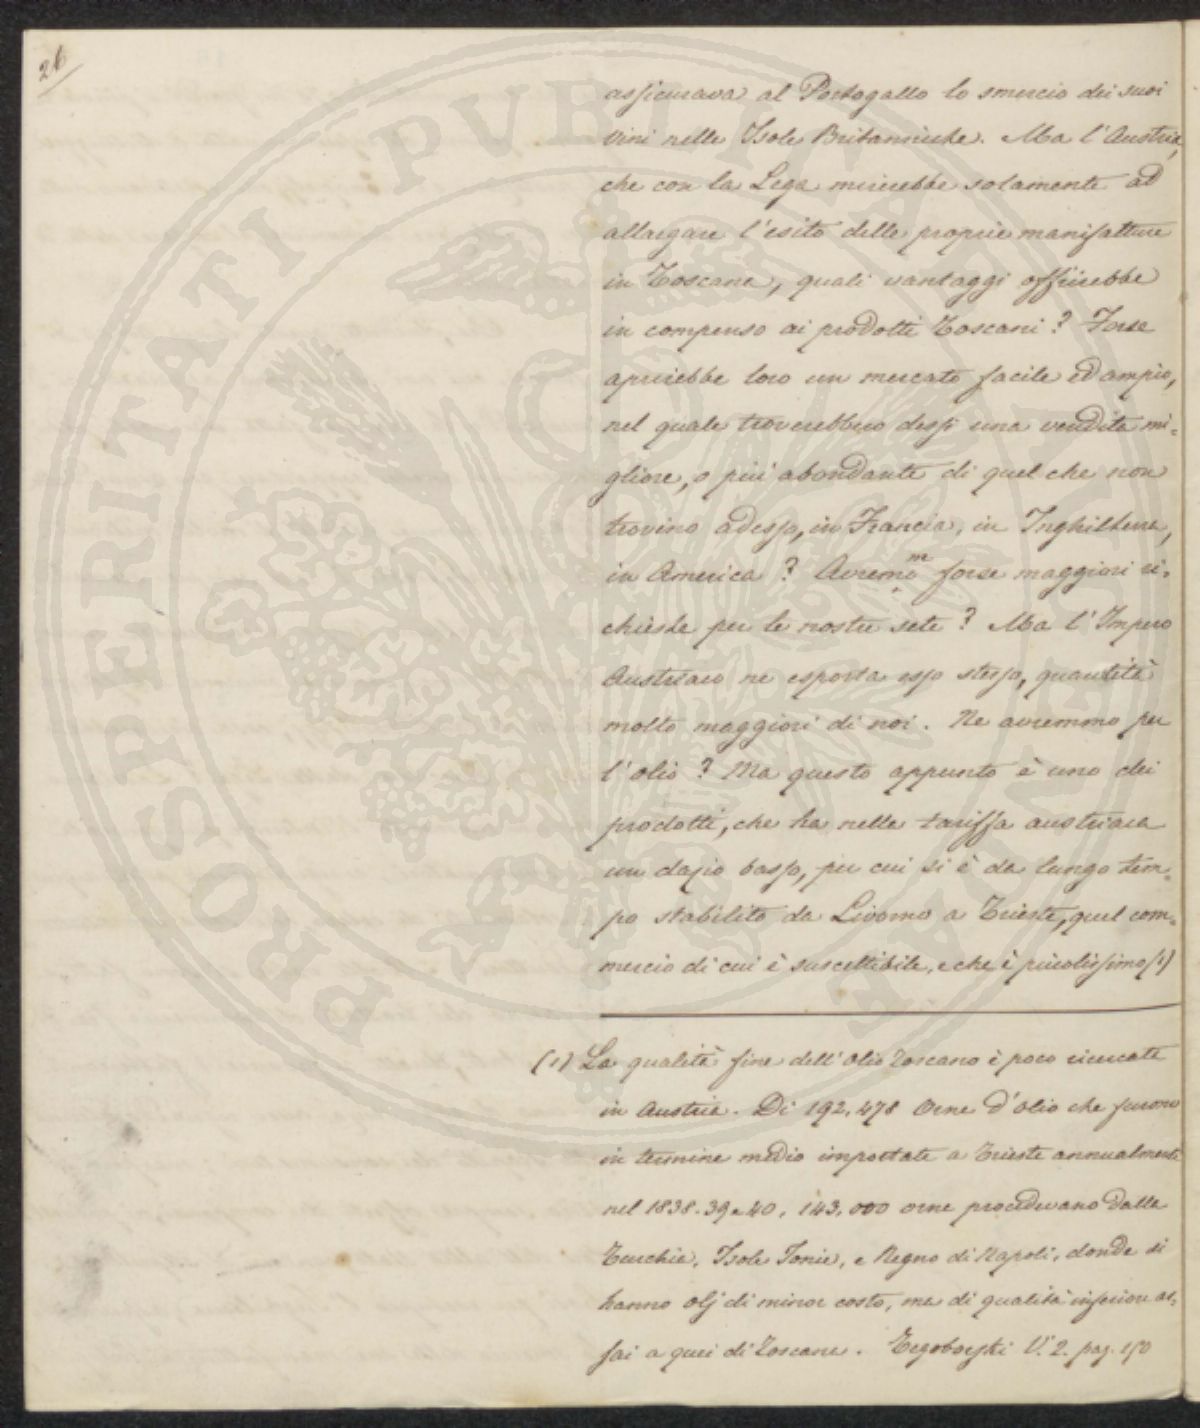 26
assicurava al Portogallo lo smercio dei suoi
vini nelle Isole Britanniche. Ma l'Austria,
che con la Lega mirerebbe solamente ad
allargare l'esito delle proprie manifatture
in Toscana, quali vantaggi offrirebbe
in compenso ai prodotti Toscani? Forse
aprirebbe loro un mercato facile ed ampio,
nel quale troverebbero dessi una vendita mi=
gliore, o più abondante di quel che non
trovino adesso, in Francia, in Inghilterra,
in America? Avremmo forse maggiori ri=
chieste per le nostre sete? Ma l'Impero
Austriaco ne esporta esso stesso, quantità
molto maggiori di noi. Ne avremmo per
l'olio? Ma questo appunto è uno dei
prodotti, che ha nella tariffa austriaca
un dazio basso, per cui si è da lungo tem=
po stabilito da Livorno a Trieste, quel com=
mercio di cui è suscettibile, e che è piccolissimo (1)
(1) La qualità fine dell'Olio Toscano è poco ricercata
in Austria. Di 192,478 Orne d'olio che furono
in termine medio importate a Trieste annualmente
nel 1838. 39 e 40, 143,000 orne procedevano dalla
Turchia, Isole Ionie, e Regno di Napoli, donde si
hanno olj di minor costo, ma di qualità inferiore as=
sai a quei di Toscana. Tegoborski V. 2. pag. 150
PROSPERITATI PVBLICAE AVGENDAE